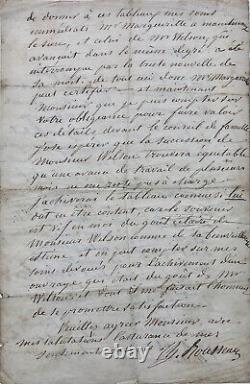 de donner à ces tableaux mes soins
immédiats Mr Margueritte a maintenu
le sien, et celui de Mr Wilson, qui
avançait dans le même degré a été
interrompu par la triste nouvelle de
sa mort. de tout ceci donc Mr Marguer
peut certifier — et maintenant
Monsieur que je puis compter sur
Votre obligeance pour faire valoir
ces détails devant le conseil de famille
J'ose espérer que la succession de
Monsieur Wilson trouvera équitable
qu'une avance de travail de plusieurs
mois ne me reste pas à charge.
J'achèverai le tableau comme si lui
dut en être content, car le souvenir
est
Monsieur Wilson comme sa bienveillante
estime et on peut compter sur mes
soins dévoués pour l'achèvement d'un
ouvrage qui était du goût de Mr
Wilson et dont il me faisait l'honneur
de se promettre satisfaction.
Veuillez agréer Monsieur, avec
mes salutations l'assurance de mes
sentiments Th. Rousseau